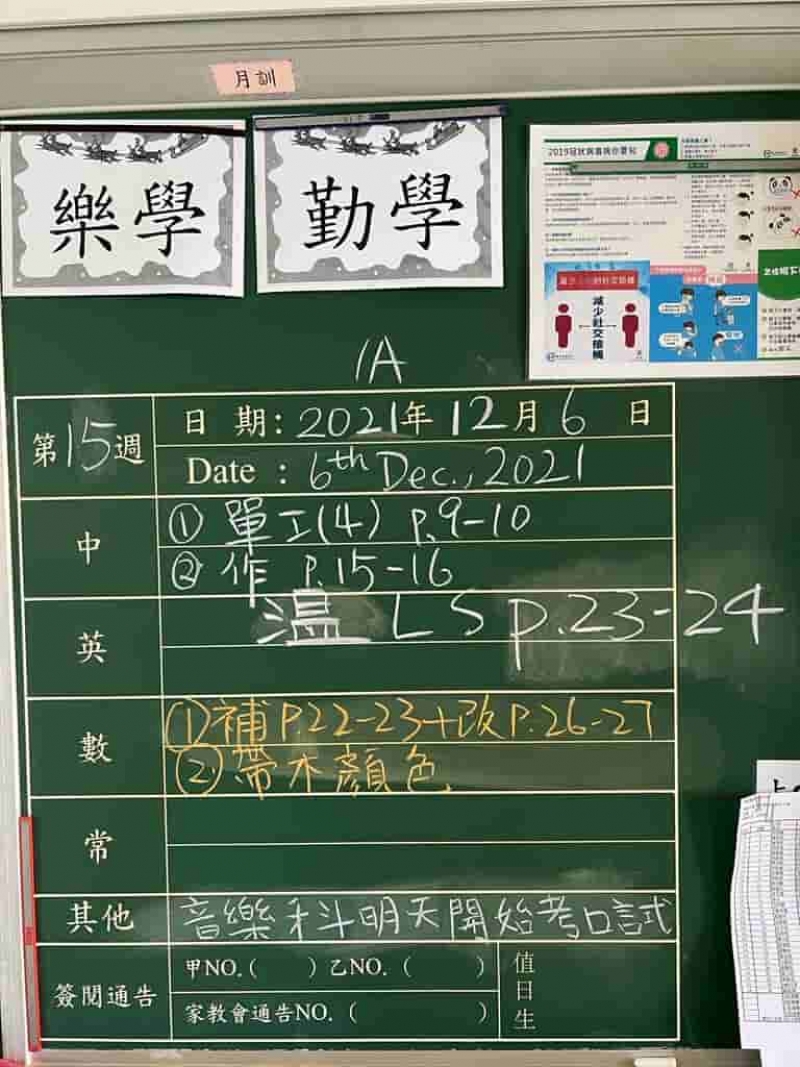 月訓
樂學
勤學
2019冠狀病毒病你要知
減少社交接觸
1A
第15週
日期: 2021年12月6日
Date : 6th Dec., 2021
中
① 單工(4) P.9-10
② 作 P.15-16
英
溫 LS p.23-24
數
① 補P.22-23+改P.26-27
② 帶木顏色
常
其他
音樂科明天開始考口試
簽閱通告
甲NO.( ) 乙NO. ( )
家教會通告NO. ( )
值日生